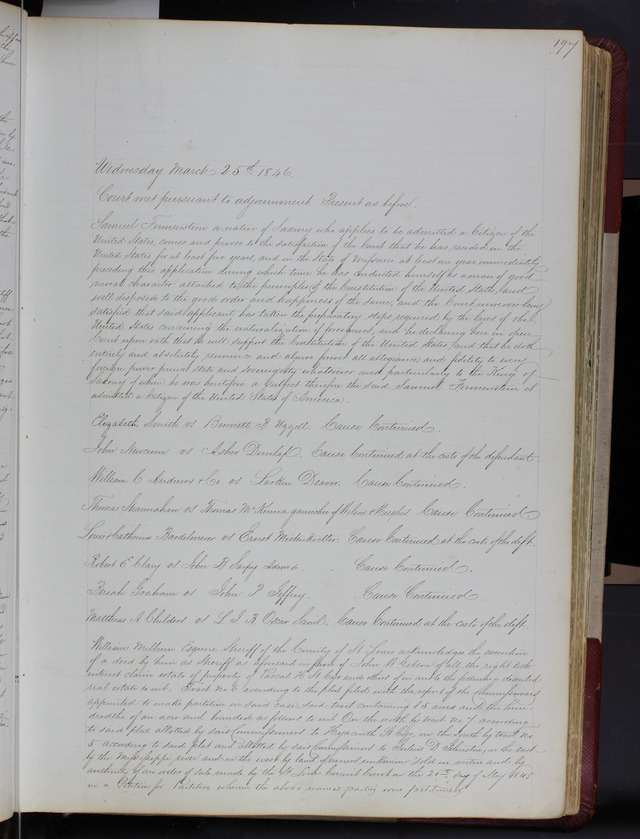 197
Wednesday March 25th 1846.
Court met pursuant to adjournment. Present as before.
Samuel a native of Saxony who applies to be admitted a Citizen of the
United States, comes and proves to the satisfaction of the Court that he has resided in the
United States for at least five years, and in the State of Missouri at least one year immediately
preceding this application during which time he has conducted himself as a man of good
moral character attached to the principles of the Constitution of the United States, and
well disposed to the good order and happiness of the same, and the Court moreover being
satisfied that said applicant has taken the preparatory steps required by the laws of the
United States concerning the naturalization of foreigners, and he declaring here in open
Court upon oath that he will support the Constitution of the United States, and that he doth
entirely and absolutely renounce and abjure forever all allegiance and fidelity to every
foreign power prince state and sovereignty whatsoever and particularly to the King of
Saxony of whom he was heretofore a Subject therefore the said Samuel is
admitted a Citizen of the United States of America.
Elizabeth Smith vs Bennett Cause Continued.
John vs Asher Dunlap. Cause Continued at the costs of the defendant.
William C Andrews & Co vs Larkin Deaver. Cause Continued.
Thomas vs Thomas McKenna garnishee of Cause Continued
Louis & Catherine vs Ernst Cause Continued at the costs of the deft.
Robert E Clary vs John A Sarpy Admr. Cause Continued.
vs John P Jeffrey. Cause Continued
Matthias A Childers vs L J B Cause Continued at the costs of the deft.
William Milburn Esquire Sheriff of the County of St Louis acknowledges the execution
of a deed by him as Sheriff as aforesaid in favor of John W of all the right title
interest claim estate & property of and others of in and to the following described
real estate to wit: Tract No 6 according to the plat filed with the report of the Commissioners
appointed to make partition in said case, said tract containing 15 acres and
of an acre and bounded as follows to wit On the north by tract No 7 according
to said plat allotted by said Commissioners to Hyacinth on the south by tract No
5 according to said plat and allotted by said Commissioners to D Johnston, on the east
by the Mississippi river and on the west by land Sold in virtue and by
authority of an order of sale made by the St Louis Circuit Court on the day of May 1845
in a Petition for Partition wherein the above named parties were petitioners